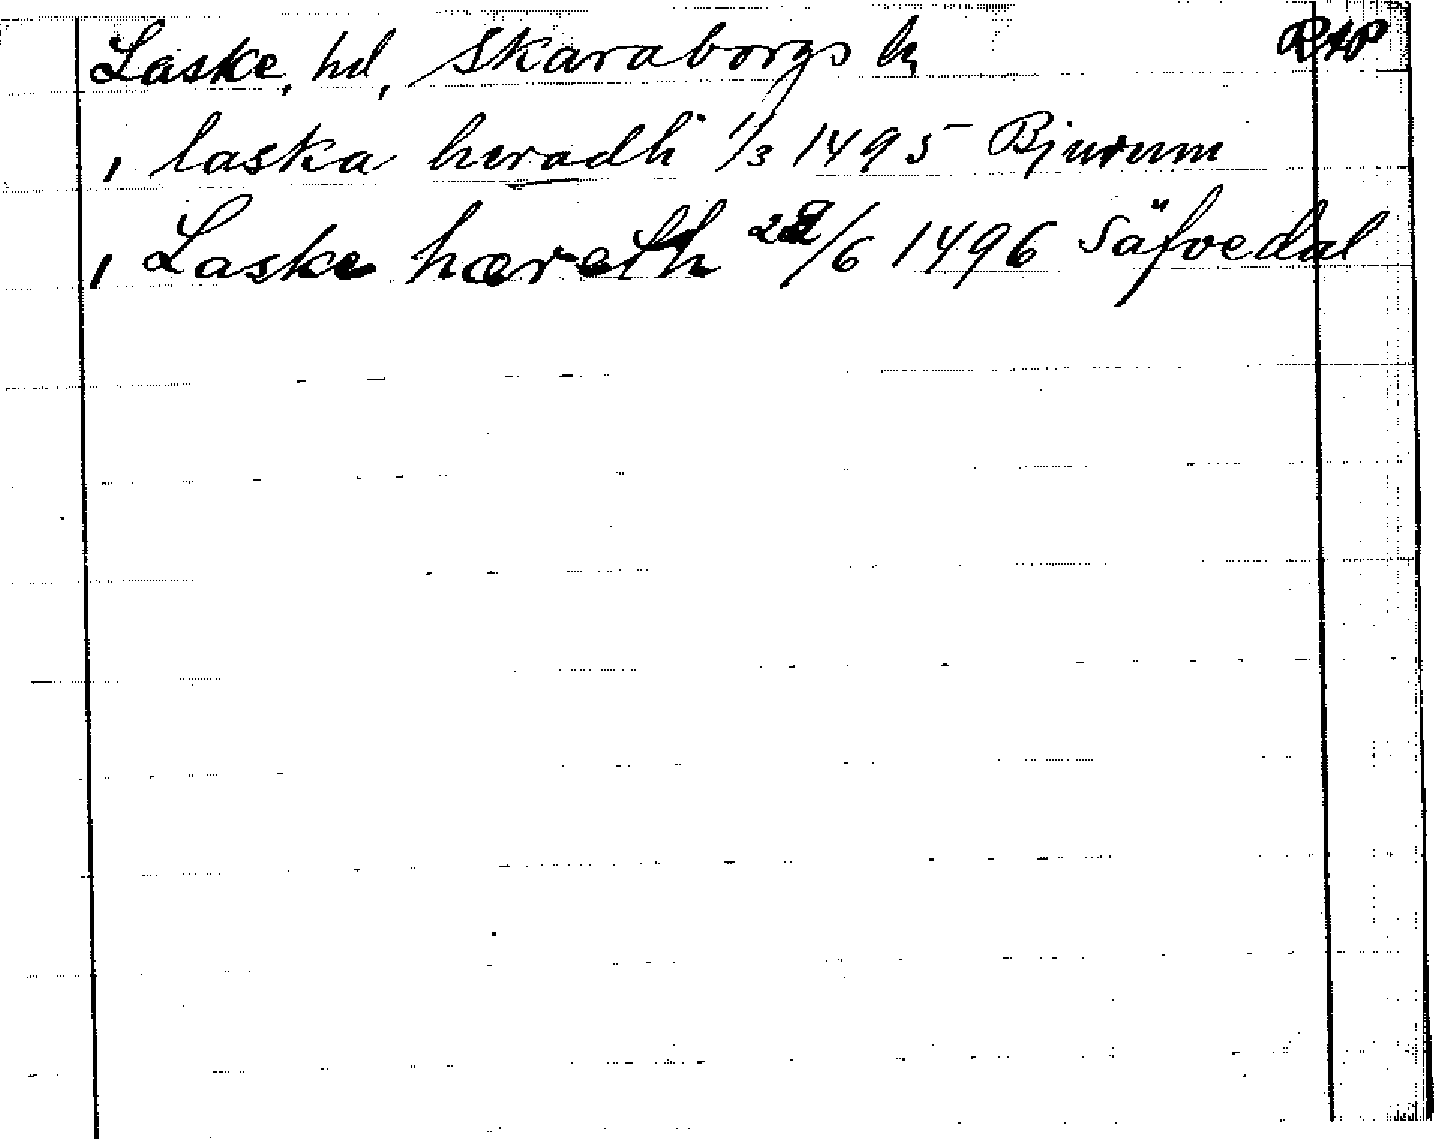 Laske, hd, Skaraborgs l. RAP
, laska heradh 1/3 1495 Bjurum
, Laske hæreth 22/6 1496 Säfvedal